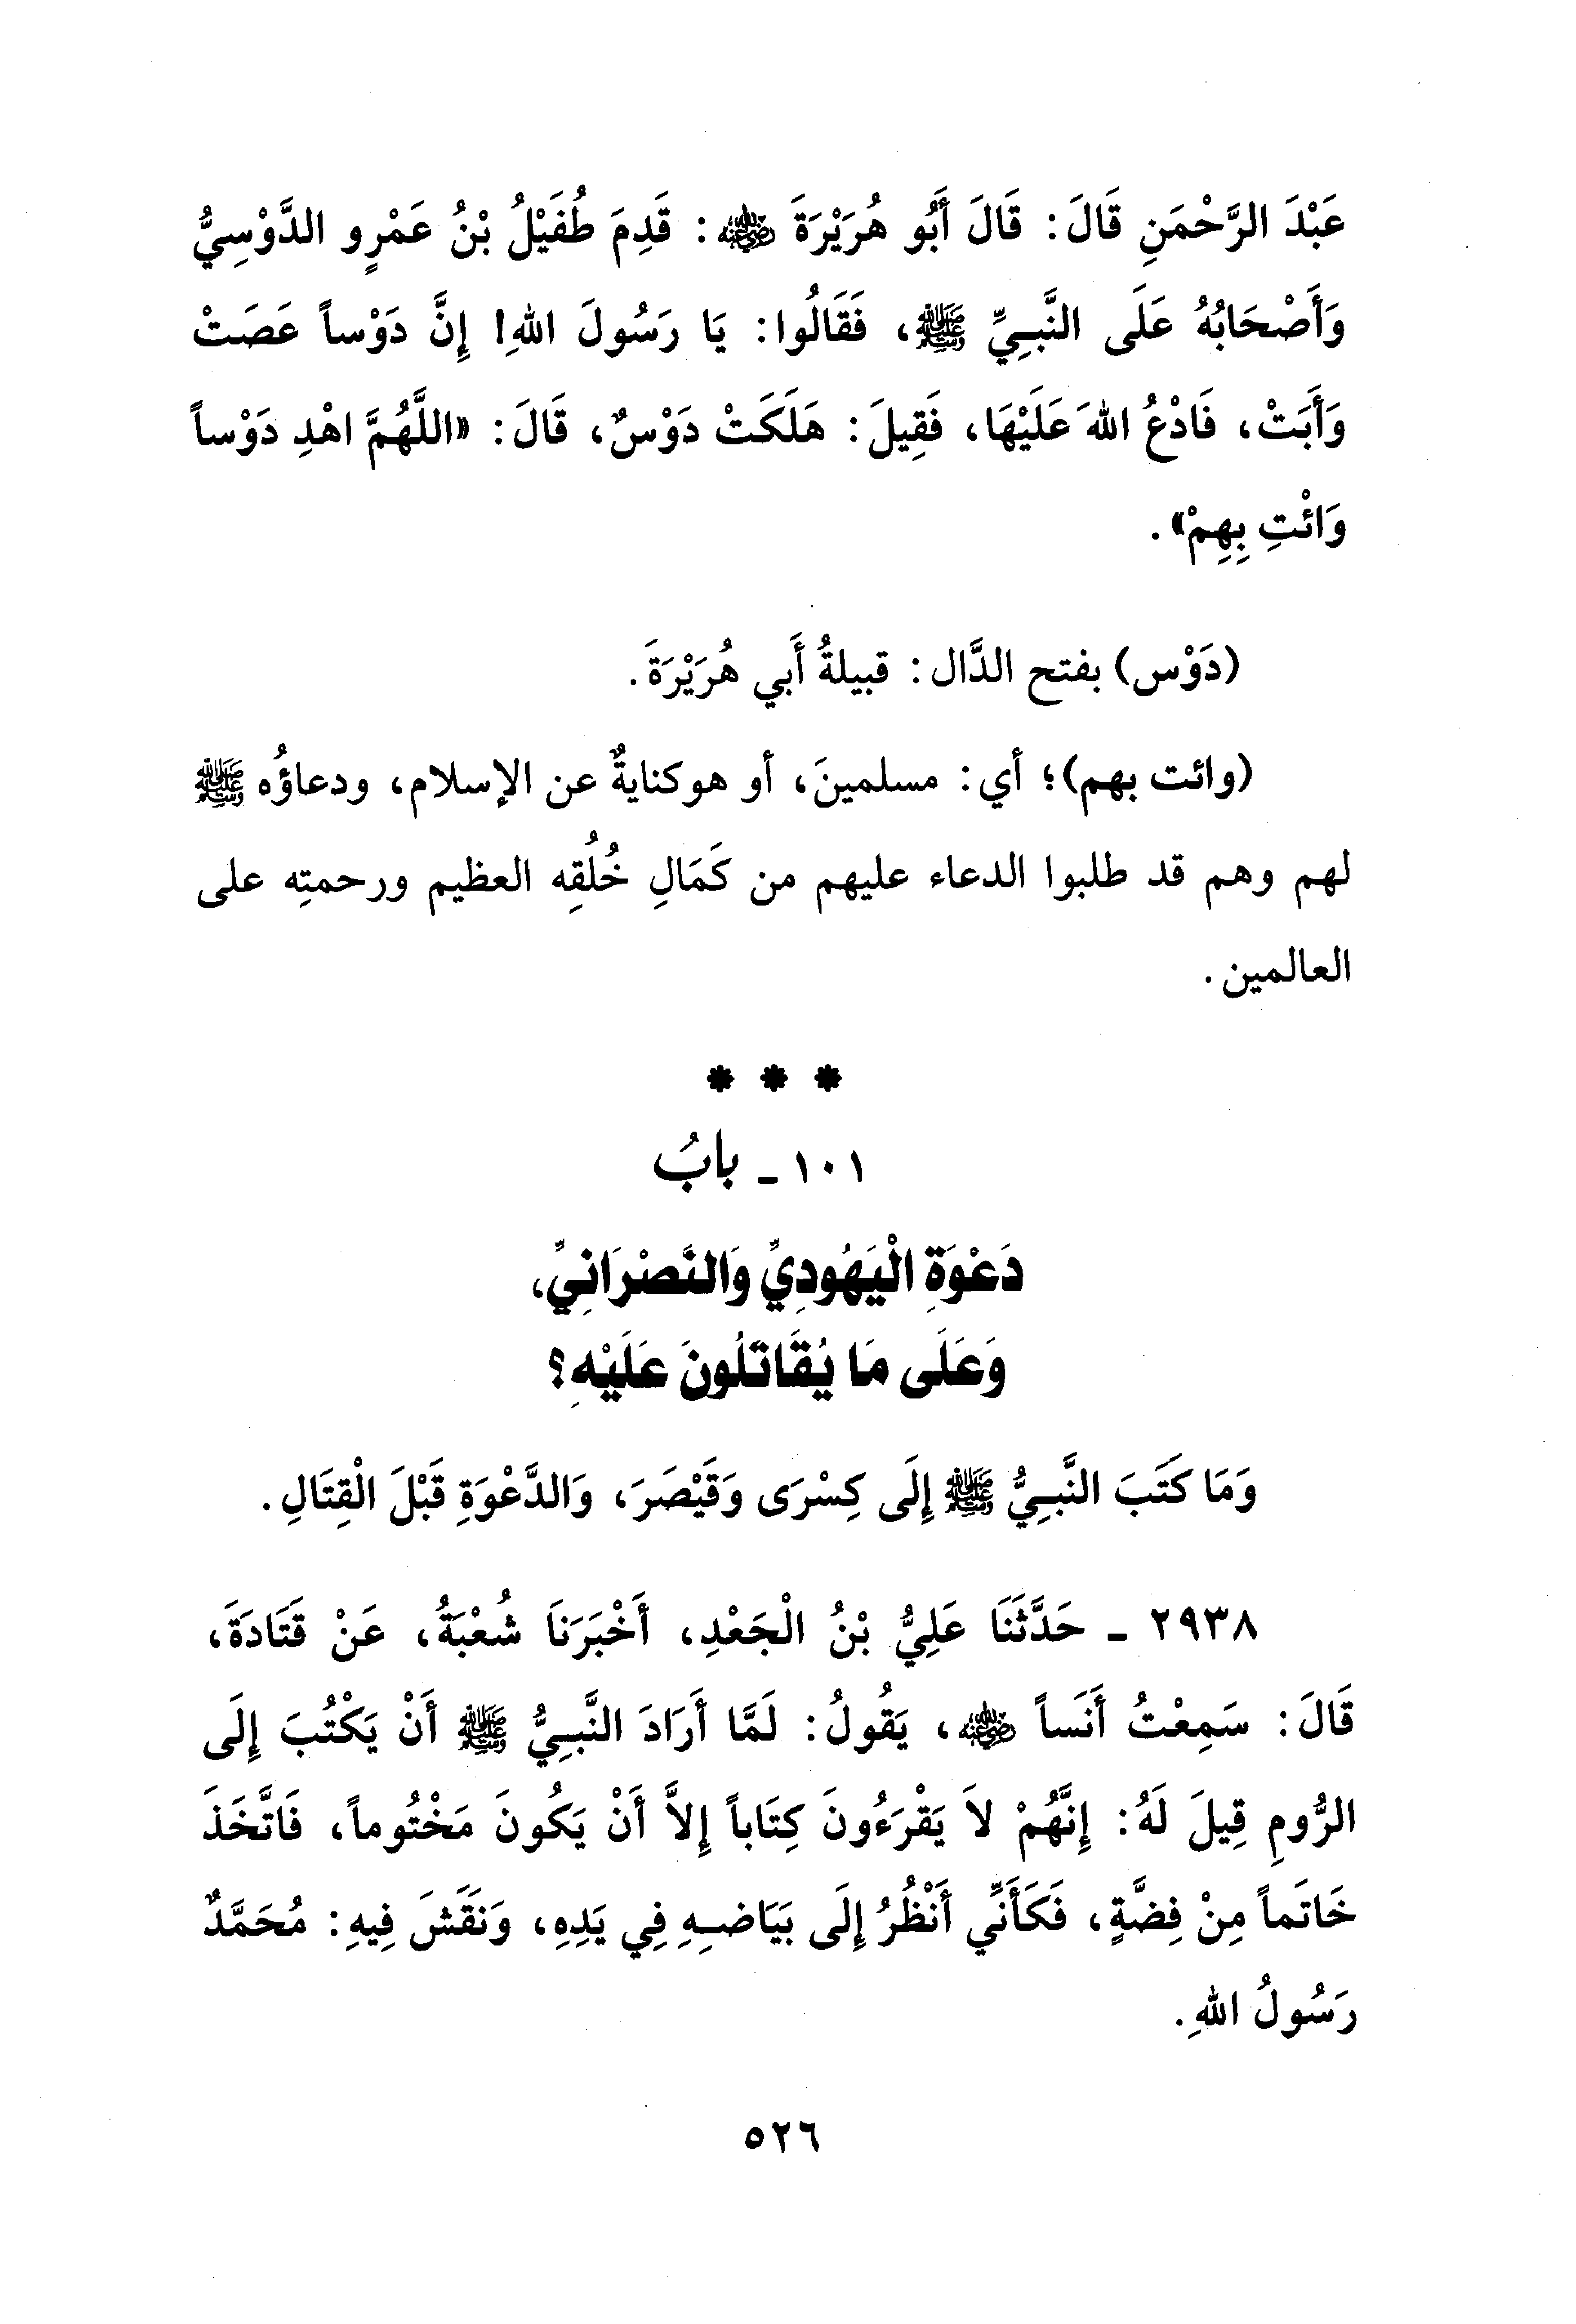 عَبْدَ الرَّحْمَنِ قَالَ: قَالَ أَبُو هُرَيْرَةَ ﵁: قَدِمَ طُفَيْلُ بْنُ عَمْرٍو الدَّوْسِيُّ
وَأَصْحَابُهُ عَلَى النَّبِيِّ ﷺ، فَقَالُوا: يَا رَسُولَ اللهِ! إِنَّ دَوْساً عَصَتْ
وَأَبَتْ، فَادْعُ اللهَ عَلَيْهَا، فَقِيلَ: هَلَكَتْ دَوْسٌ، قَالَ: «اللَّهُمَّ اهْدِ دَوْساً
وَائْتِ بِهِمْ».
(دَوْس) بفتح الدَّال: قبيلةُ أَبي هُرَيْرَةَ.
(وائت بهم)؛ أي: مسلمينَ، أو هو كنايةٌ عن الإسلام، ودعاؤُه ﷺ
لهم وهم قد طلبوا الدعاء عليهم من كَمَالِ خُلُقِه العظيم ورحمتِه على
العالمين.
* * *
١٠١ - بابُ
دَعْوَةِ الْيَهُودِيِّ وَالنَّصْرَانِيِّ،
وَعَلَى مَا يُقَاتَلُونَ عَلَيْهِ؟
وَمَا كَتَبَ النَّبِيُّ ﷺ إِلَى كِسْرَى وَقَيْصَرَ، وَالدَّعْوَةِ قَبْلَ الْقِتَالِ.
٢٩٣٨ - حَدَّثَنَا عَلِيُّ بْنُ الْجَعْدِ، أَخْبَرَنَا شُعْبَةُ، عَنْ قَتَادَةَ،
قَالَ: سَمِعْتُ أَنَساً ﵁، يَقُولُ: لَمَّا أَرَادَ النَّبِيُّ ﷺ أَنْ يَكْتُبَ إِلَى
الرُّومِ قِيلَ لَهُ: إِنَّهُمْ لاَ يَقْرَءُونَ كِتَاباً إِلاَّ أَنْ يَكُونَ مَخْتُوماً، فَاتَّخَذَ
خَاتَماً مِنْ فِضَّةٍ، فَكَأَنِّي أَنْظُرُ إِلَى بَيَاضِهِ فِي يَدِهِ، وَنَقَشَ فِيهِ: مُحَمَّدٌ
رَسُولُ اللهِ.
٥٢٦